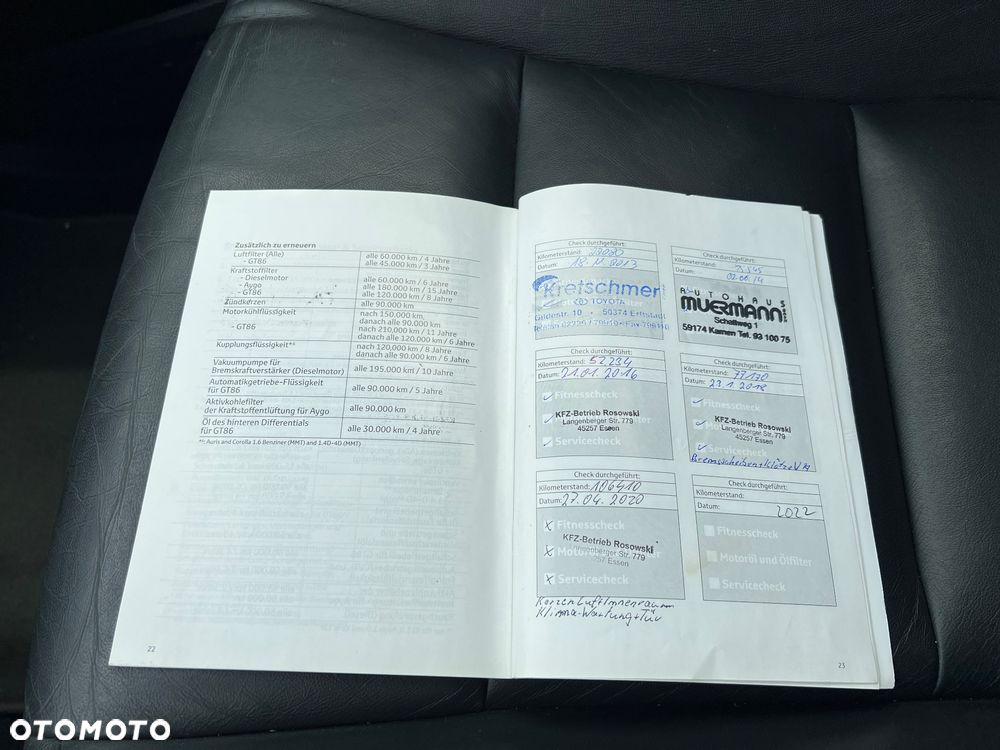 Zusätzlich zu erneuern
Luftfilter (Alle) alle 60.000 km / 4 Jahre
- GT86 alle 45.000 km / 3 Jahre
Kraftstoffilter
- Dieselmotor alle 60.000 km / 6 Jahre
- Aygo alle 180.000 km / 15 Jahre
- GT86 alle 120.000 km / 8 Jahre
Zündkerzen alle 90.000 km
Motorkühlflüssigkeit nach 150.000 km,
danach alle 90.000 km
- GT86 nach 210.000 km / 11 Jahre
danach alle 120.000 km / 6 Jahre
Kupplungsflüssigkeit*⁴ nach 120.000 km / 8 Jahre
danach alle 90.000 km / 6 Jahre
Vakuumpumpe für
Bremskraftverstärker (Dieselmotor) alle 195.000 km / 10 Jahre
Automatikgetriebe-Flüssigkeit
für GT86 alle 90.000 km / 5 Jahre
Aktivkohlefilter
der Kraftstoffentlüftung für Aygo alle 90.000 km
Öl des hinteren Differentials
für GT86 alle 30.000 km / 4 Jahre
*⁴: Auris and Corolla 1.6 Benziner (MMT) and 1.4D-4D (MMT)
22
Check durchgeführt:
Kilometerstand:
Datum: 18.11.2013
Kretschmer
TOYOTA
50374 Erftstadt
Check durchgeführt:
Kilometerstand:
Datum: 02.06.14
AUTOHAUS
MUERMANN
Schattweg 1
59174 Kamen Tel. 93 100 75
Check durchgeführt:
Kilometerstand: 52234
Datum: 21.01.2016
Fitnesscheck
KFZ-Betrieb Rosowski
Langenberger Str. 779
45257 Essen
Servicecheck
Check durchgeführt:
Kilometerstand: 77170
Datum: 23.1.2018
Fitnesscheck
KFZ-Betrieb Rosowski
Langenberger Str. 779
45257 Essen
Servicecheck
Bremsscheiben+Klötze VA
Check durchgeführt:
Kilometerstand: 106410
Datum: 27.04.2020
Fitnesscheck
KFZ-Betrieb Rosowski
Langenberger Str. 779
Essen
Servicecheck
Kerzen Luft Innenraum
Klima-Wartung+Tüv
Check durchgeführt:
Kilometerstand:
Datum: 2022
Fitnesscheck
Motoröl und Ölfilter
Servicecheck
23
OTOMOTO